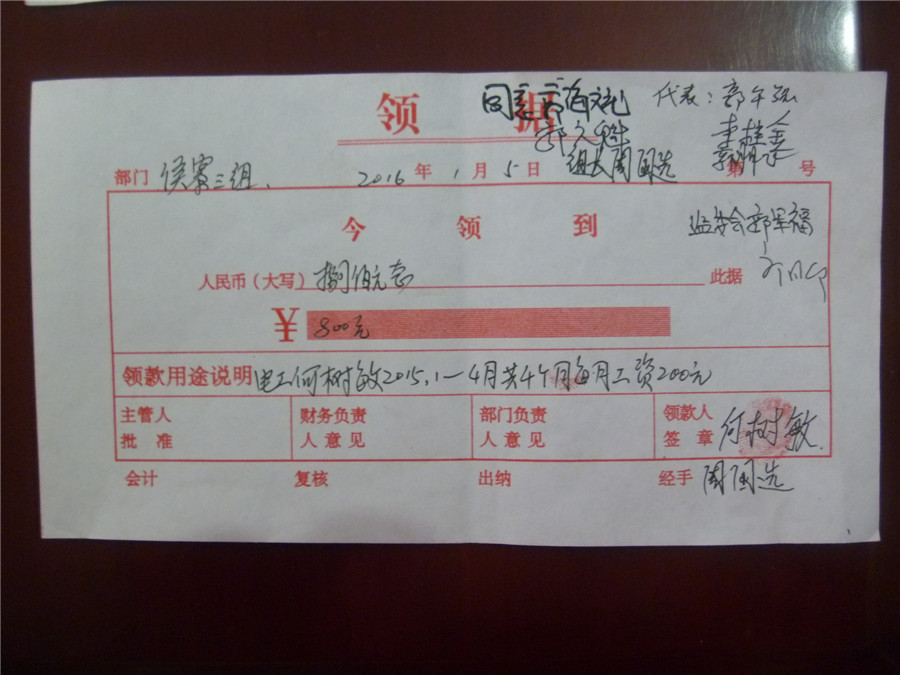 领 据
同意
代表：郭午强
李桂金
组长周国选
部门 侯寨三组. 2016年1月5日 第 号
今领到
监委会郭军福
人民币（大写）捌佰元整 此据
¥ 800元
领款用途说明 电工何树敏2015.1—4月共4个月每月工资200元
主管人批准 财务负责人意见 部门负责人意见 领款人签章 何树敏.
会计 复核 出纳 经手 周国选